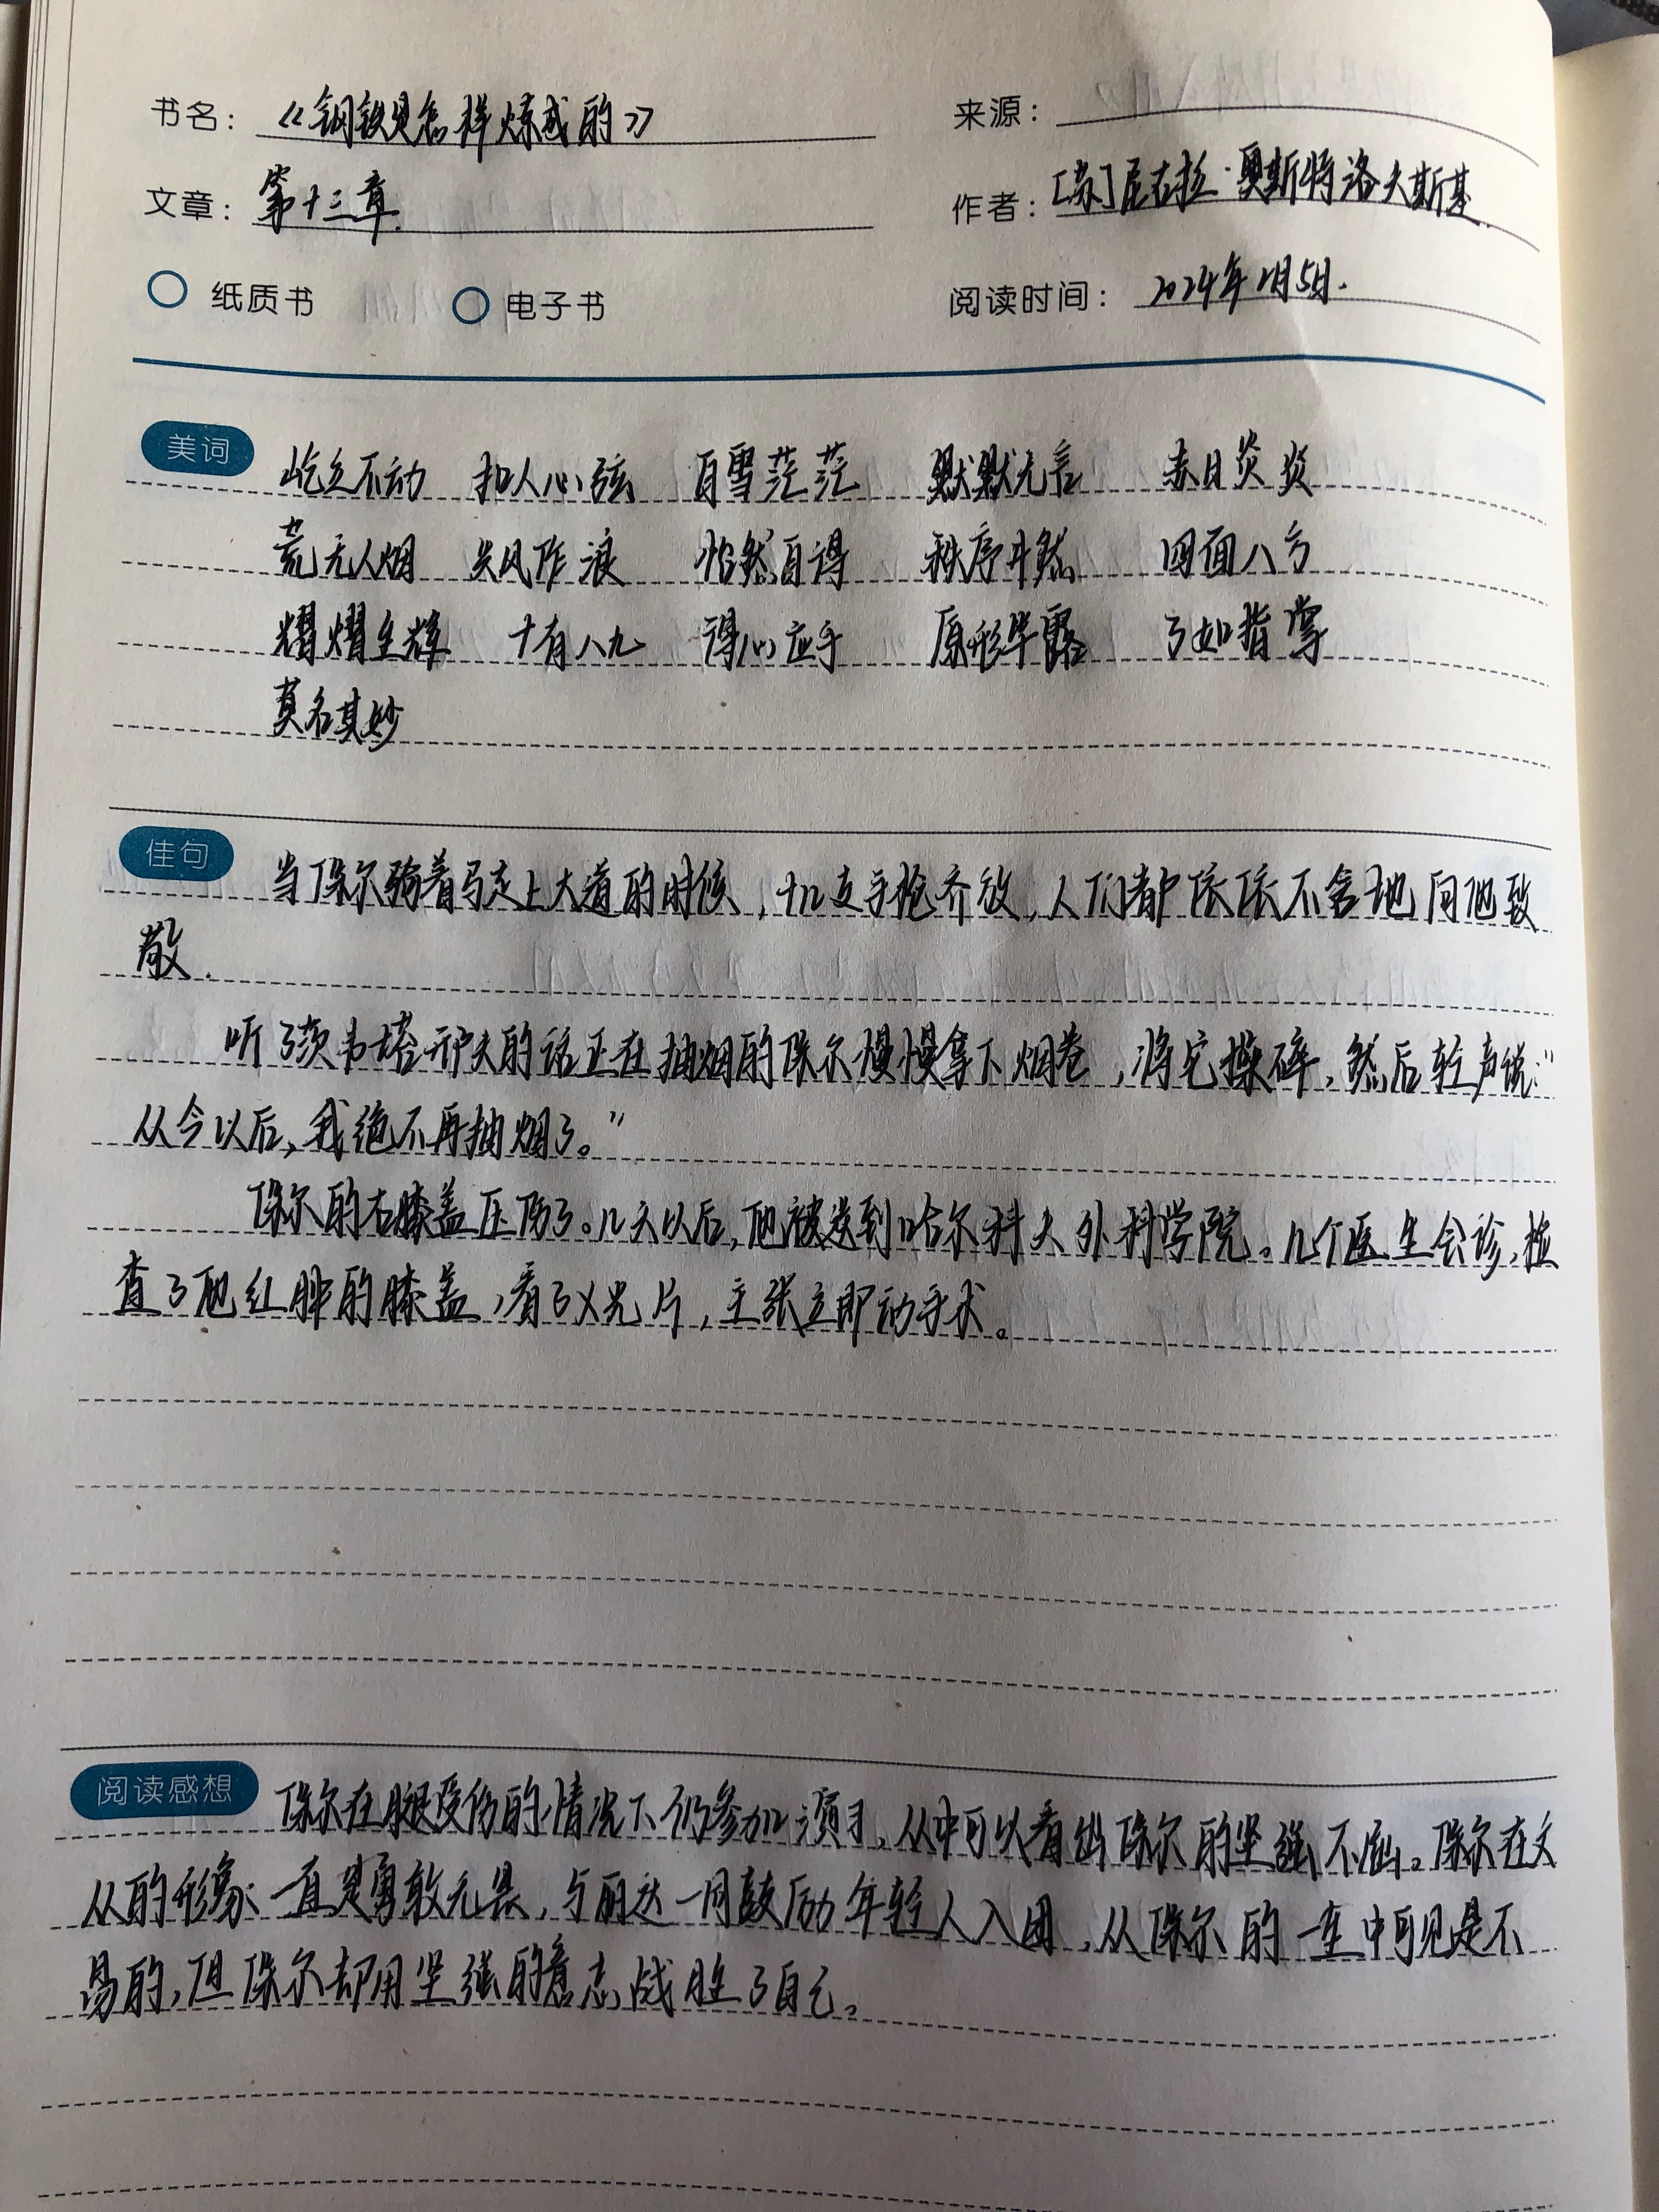 书名：《钢铁是怎样炼成的》
来源：
文章：第十三章.
作者：[苏]尼古拉·奥斯特洛夫斯基.
纸质书 电子书
阅读时间：2024年2月5日.
美词 屹立不动 扣人心弦 白雪茫茫 默默无言 赤日炎炎
荒无人烟 兴风作浪 怡然自得 秩序井然 四面八方
熠熠生辉 十有八九 得心应手 原形毕露 了如指掌
莫名其妙
佳句 当保尔骑着马走上大道的时候，十几支手枪齐放，人们都依依不舍地向他致
敬.
听了须韦塔邢夫的话正在抽烟的保尔慢慢拿下烟卷，将它揉碎，然后轻声说：“
从今以后，我绝不再抽烟了。”
保尔的右膝盖压伤了。几天以后，他被送到哈尔科夫外科学院。几个医生会诊，检
查了他红肿的膝盖，看了X光片，主张立即动手术。
阅读感想 保尔在腿受伤的情况下仍参加演习，从中可以看出保尔的坚强不屈。保尔在文
从的形象一直是勇敢无畏，与丽达一同鼓励年轻人入团，从保尔的一生中可见是不
易的，但保尔却用坚强的意志战胜了自己。